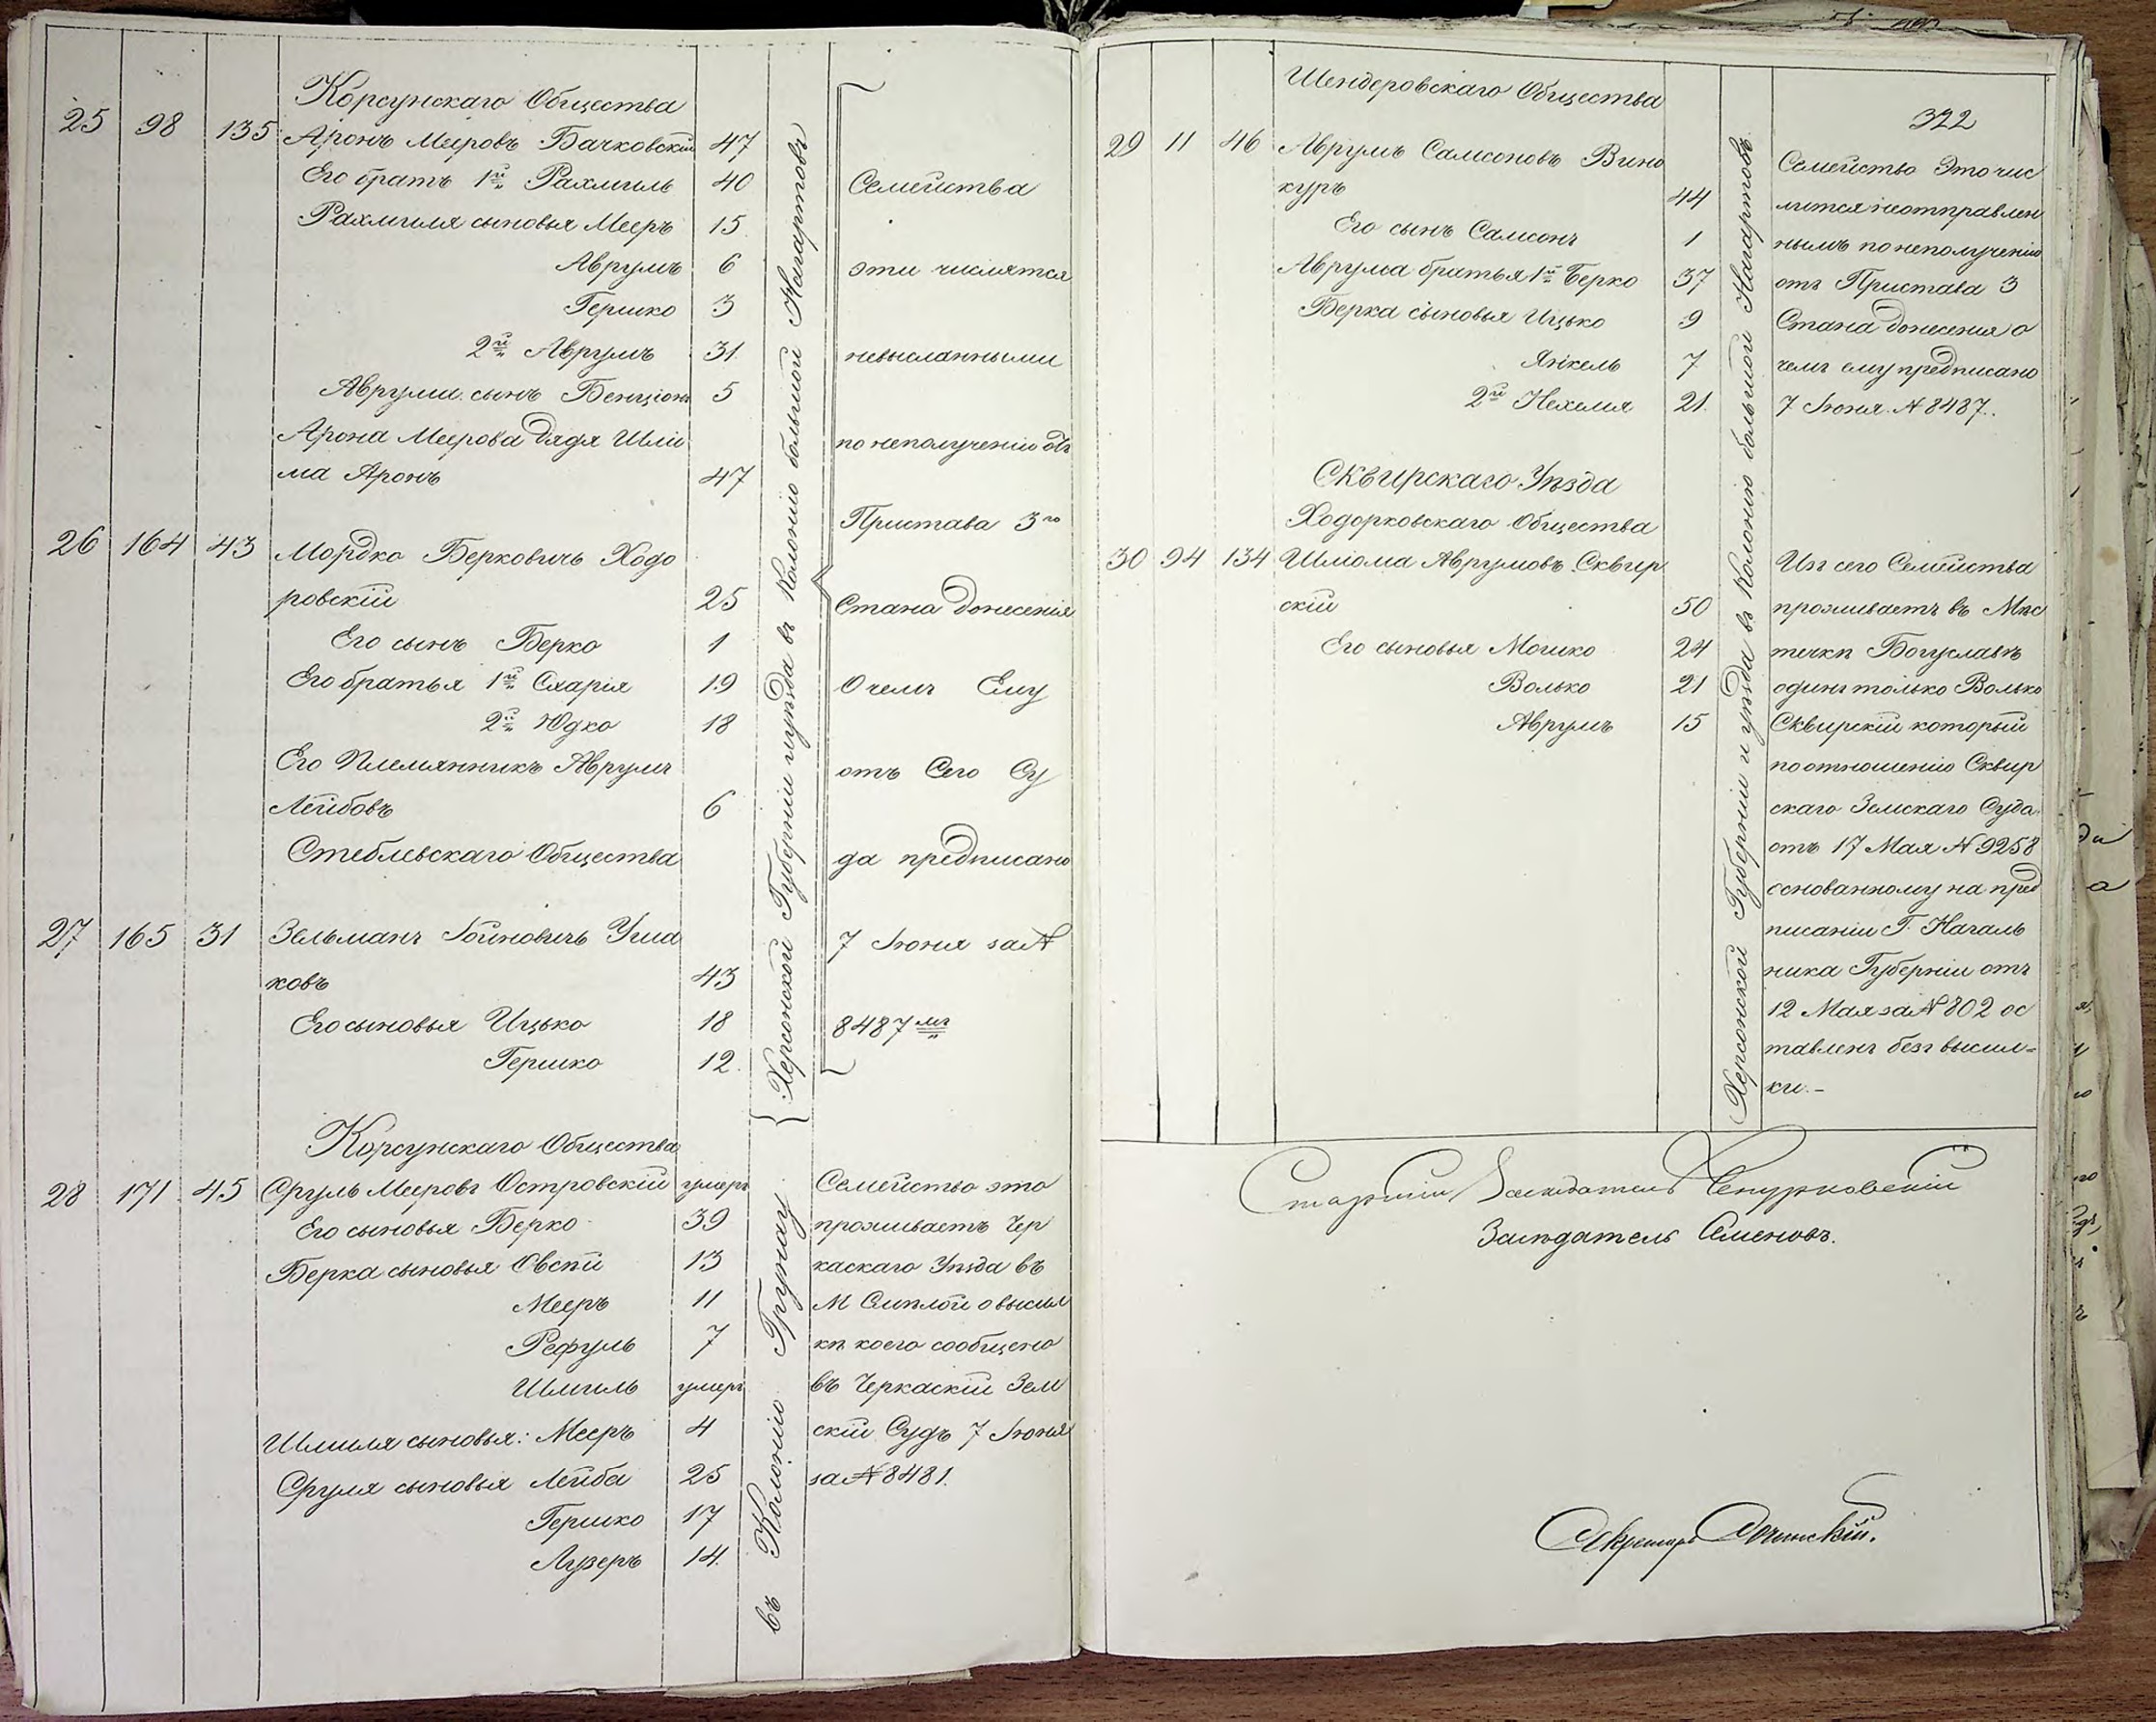 Корсунскаго Общества
25 98 135 Аронъ Мееровъ Бачковскій 47
Его братъ 1й Рахмиль 40
Рахмиля сыновья Мееръ 15
Аврумъ 6
Гершко 3
2й Аврумъ 31.
Аврума сынъ Бенціонъ 5
Арона Меерова дядя Шліо
ма Аронъ 47
26 164 43 Мордко Берковичъ Ходо
ровскій 25
Его сынъ Берко 1
Его братья 1й Схарія 19
2й Юдко 18
Его Племянникъ Аврумъ
Лейбовъ 6
Стеблевскаго Общества
27 165 31 Зельманъ Іойновичъ Уша
ковъ 43
Его сыновья Ицько 18
Гершко 12.
Корсунскаго Общества
28 171 45 Сруль Мееровъ Островскій умеръ
Его сыновья Берко 39
Берка сыновья Овсѣй 13
Мееръ 11
Рефуль 7
Шмиль умеръ
Шмиля сыновья: Мееръ 4
Сруля сыновья Лейба 25
Гершко 17
Лузеръ 14.
Херсонской Губерніи и уѣзда въ Колонію большой Нагартовъ
въ Колонію Грунау
Семейства
эти числятся
невысланными
по неполученію отъ
Пристава 3го
Стана донесенія
О чемъ Ему
отъ Сего Су
да предписано
7 Іюня за №
8487мъ
Семейство это
проживаетъ Чер
каскаго Уѣзда въ
М Смѣлой о высыл
кѣ коего сообщено
въ Черкаскій Зем
скій Судъ 7 Іюня
за № 8481.
322
Шендеровскаго Общества
29 11 46 Аврумъ Самсоновъ Вино
куръ 44
Его сынъ Самсонъ 1
Аврума братья 1й Берко 37
Берка сыновья Ицько 9
Янкель 7
2й Нехемя 21.
Сквирскаго Уѣзда
Ходорковскаго Общества
30 94 134 Шліома Аврумовъ Сквир
скій 50
Его сыновья Мошко 24
Волько 21
Аврумъ 15
Херсонской Губерніи и уѣзда въ Колонію большой Нагартовъ
Семейство Это чис
лится неотправлен
нымъ по неполученію
отъ Пристава 3
Стана донесенія о
чемъ ему предписано
7 Іюня № 8487.
Изъ сего Семейства
проживаетъ въ Мѣс
течкѣ Богуславѣ
одинъ только Волько
Сквирскій который
по отношенію Сквир
скаго Земскаго Суда
отъ 17 Мая № 9258
основанному на пред
писаніи Г. Началь
ника Губерніи отъ
12 Мая за № 802 ос
тавленъ безъ высыл=
ки. –
Старшій Засѣдатель
Засѣдатель Семеновъ.
Секретарь